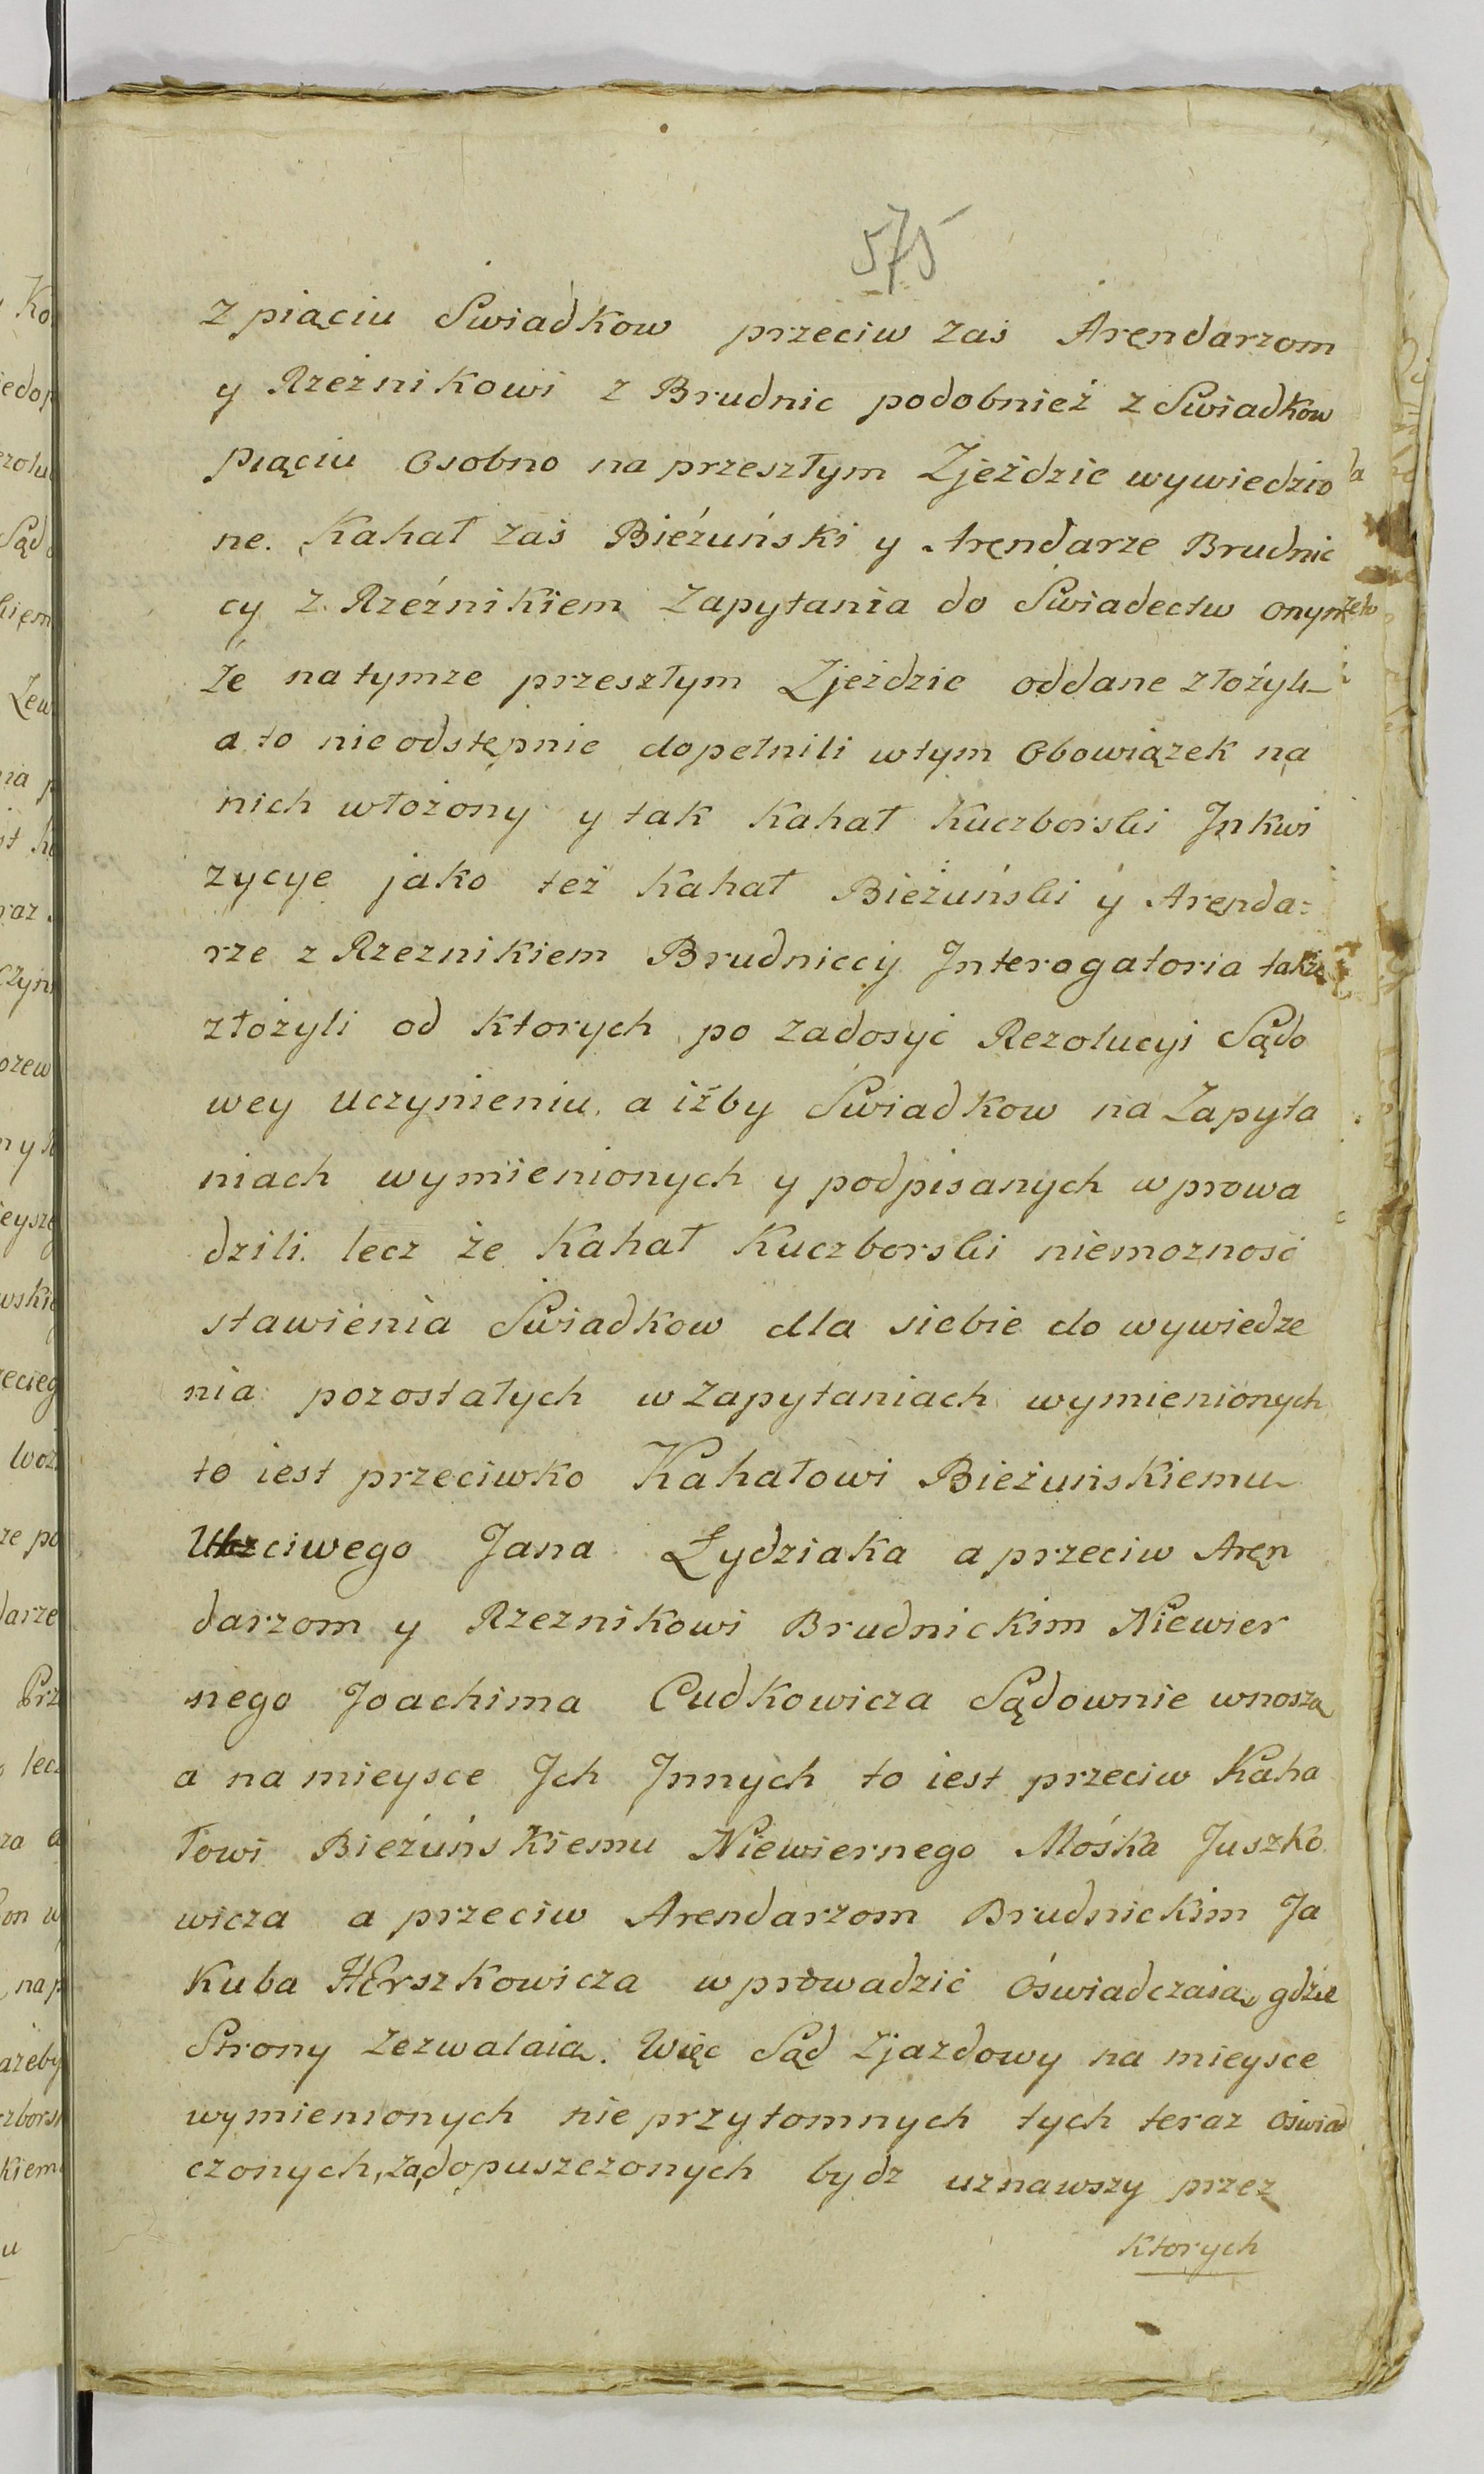 575
z piąciu Swiadkow przeciw zaś Aręndarzom
y Rzeźnikowi z Brudnic podobnież z Swiadkow
piąciu osobno na przeszłym Zjeździe wywiedzio
ne. Kahał zaś Bieżuński y Aręndarze Brudnic
cy z Rzeźnikiem Zapytania do Swiadectw onym
że na tymże przeszłym Zjeździe oddane złożyli
a to nieodstępnie dopełnili wtym Obowiązek na
nich włożony y tak Kahał Kuczborski Jnkwi
zycye jako też Kahał Bieżuński y Aręnda=
rze z Rzeznikiem Brudniccy Jnterogatoria także
złożyli od ktorych po zadosyć Rezolucyi Sądo
wey uczynieniu, a iżby Swiadkow na Zapyta
niach wymienionych y podpisanych wprowa
dzili. lecz że Kahał Kuczborski niemozność
stawienia Swiadkow dla siebie do wywiedze
nia pozostałych w Zapytaniach wymienionych
to iest przeciwko Kahałowi Bieżuńskiemu
Uczciwego Jana Łydziaka a przeciw Aręn
darzom y Rzeznikowi Brudnickim Niewier
nego Joachima Cudkowicza Sądownie wnoszą
a na mieysce Jch Jnnych to iest przeciw Kaha
łowi Bieżuńskiemu Niewiernego Mośka Juszko
wicza a przeciw Arendarzom Brudnickim Ja
kuba Herszkowicza wprowadzić Oświadczaią gdzie
Strony zezwalaią. Więc Sąd Zjazdowy na mieysce
wymienionych nie przytomnych tych teraz oświad
czonych, za dopuszczonych bydz uznawszy przez
ktorych